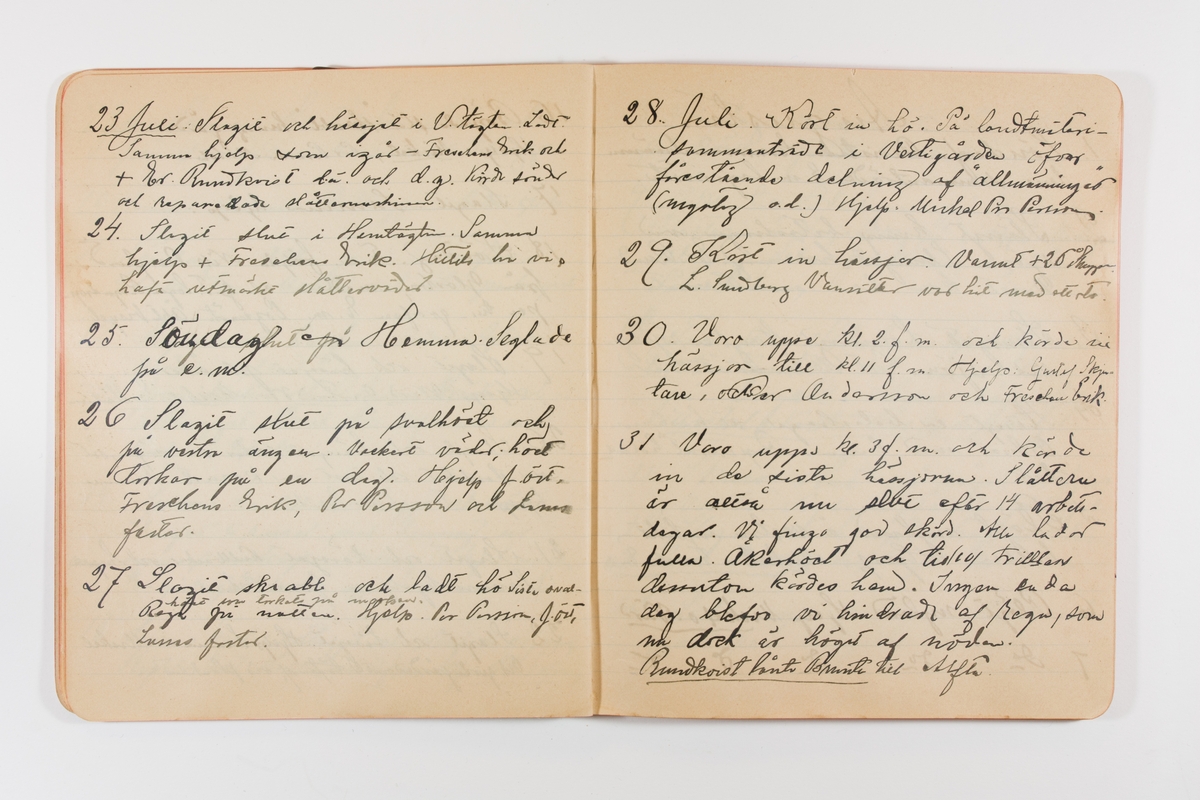 23 Juli. Slagit och hässjat i V. tägten. Ladt.
Samma hjelp som igår – Freschens Erik och
+ Er. Rundkvist och d.y. Körde sönder
och reparerade slåttermaskinen.
24. Slagit slut i Hemtägten. Samma
hjelp + Freschens Erik. Hittils ha vi
haft utmärkt slåtterväder.
25. Söndag Hemma. Seglade
på e.m.
26 Slagit slut på svalhöst och
på vestra ängen. Vackert väder; höet
torkar på en dag. Hjelp J. öst,
Freschens Erik, Per Persson och Lums
faster.
27 Slagit skrabb och ladt hö Sista sval-
höet torkat på
Regn på natten. Hjelp. Per Persson, J. öst,
Lums faster.
28. Juli. Kört in hö. På landtmäteri-
sammanträde i Vestigården öfver
förestående delning af "allmänninges"
(myrslog o.d.) Hjelp. Michel Pers Persson.
29. Kört in hässjor. Varmt +26 i skuggan
L. Sundberg var hit med
30. Voro uppe kl. 2 f.m. och körde in
hässjor till kl. 11 f.m. Hjelp. Gustaf Skju-
tare, Andersson och Freschen Erik.
31 Voro uppe kl. 3 f.m. och körde
in de sista hässjorna. Slåttern
är altså nu slut efter 14 arbets-
dagar. Vi fingo god skörd. Alla lador
fulla. Åkerhöet och trillor
dessutom kördes hem. Ingen enda
dag blefvo vi hindrade af Regn, som
nu dock är högst af nöden.
Rundkvist lånte Brunte till Alfta.